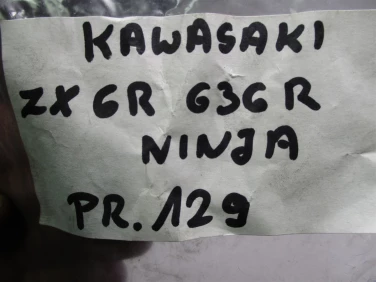 KAWASAKI
ZX 6R 636 R
NINJA
PR. 129